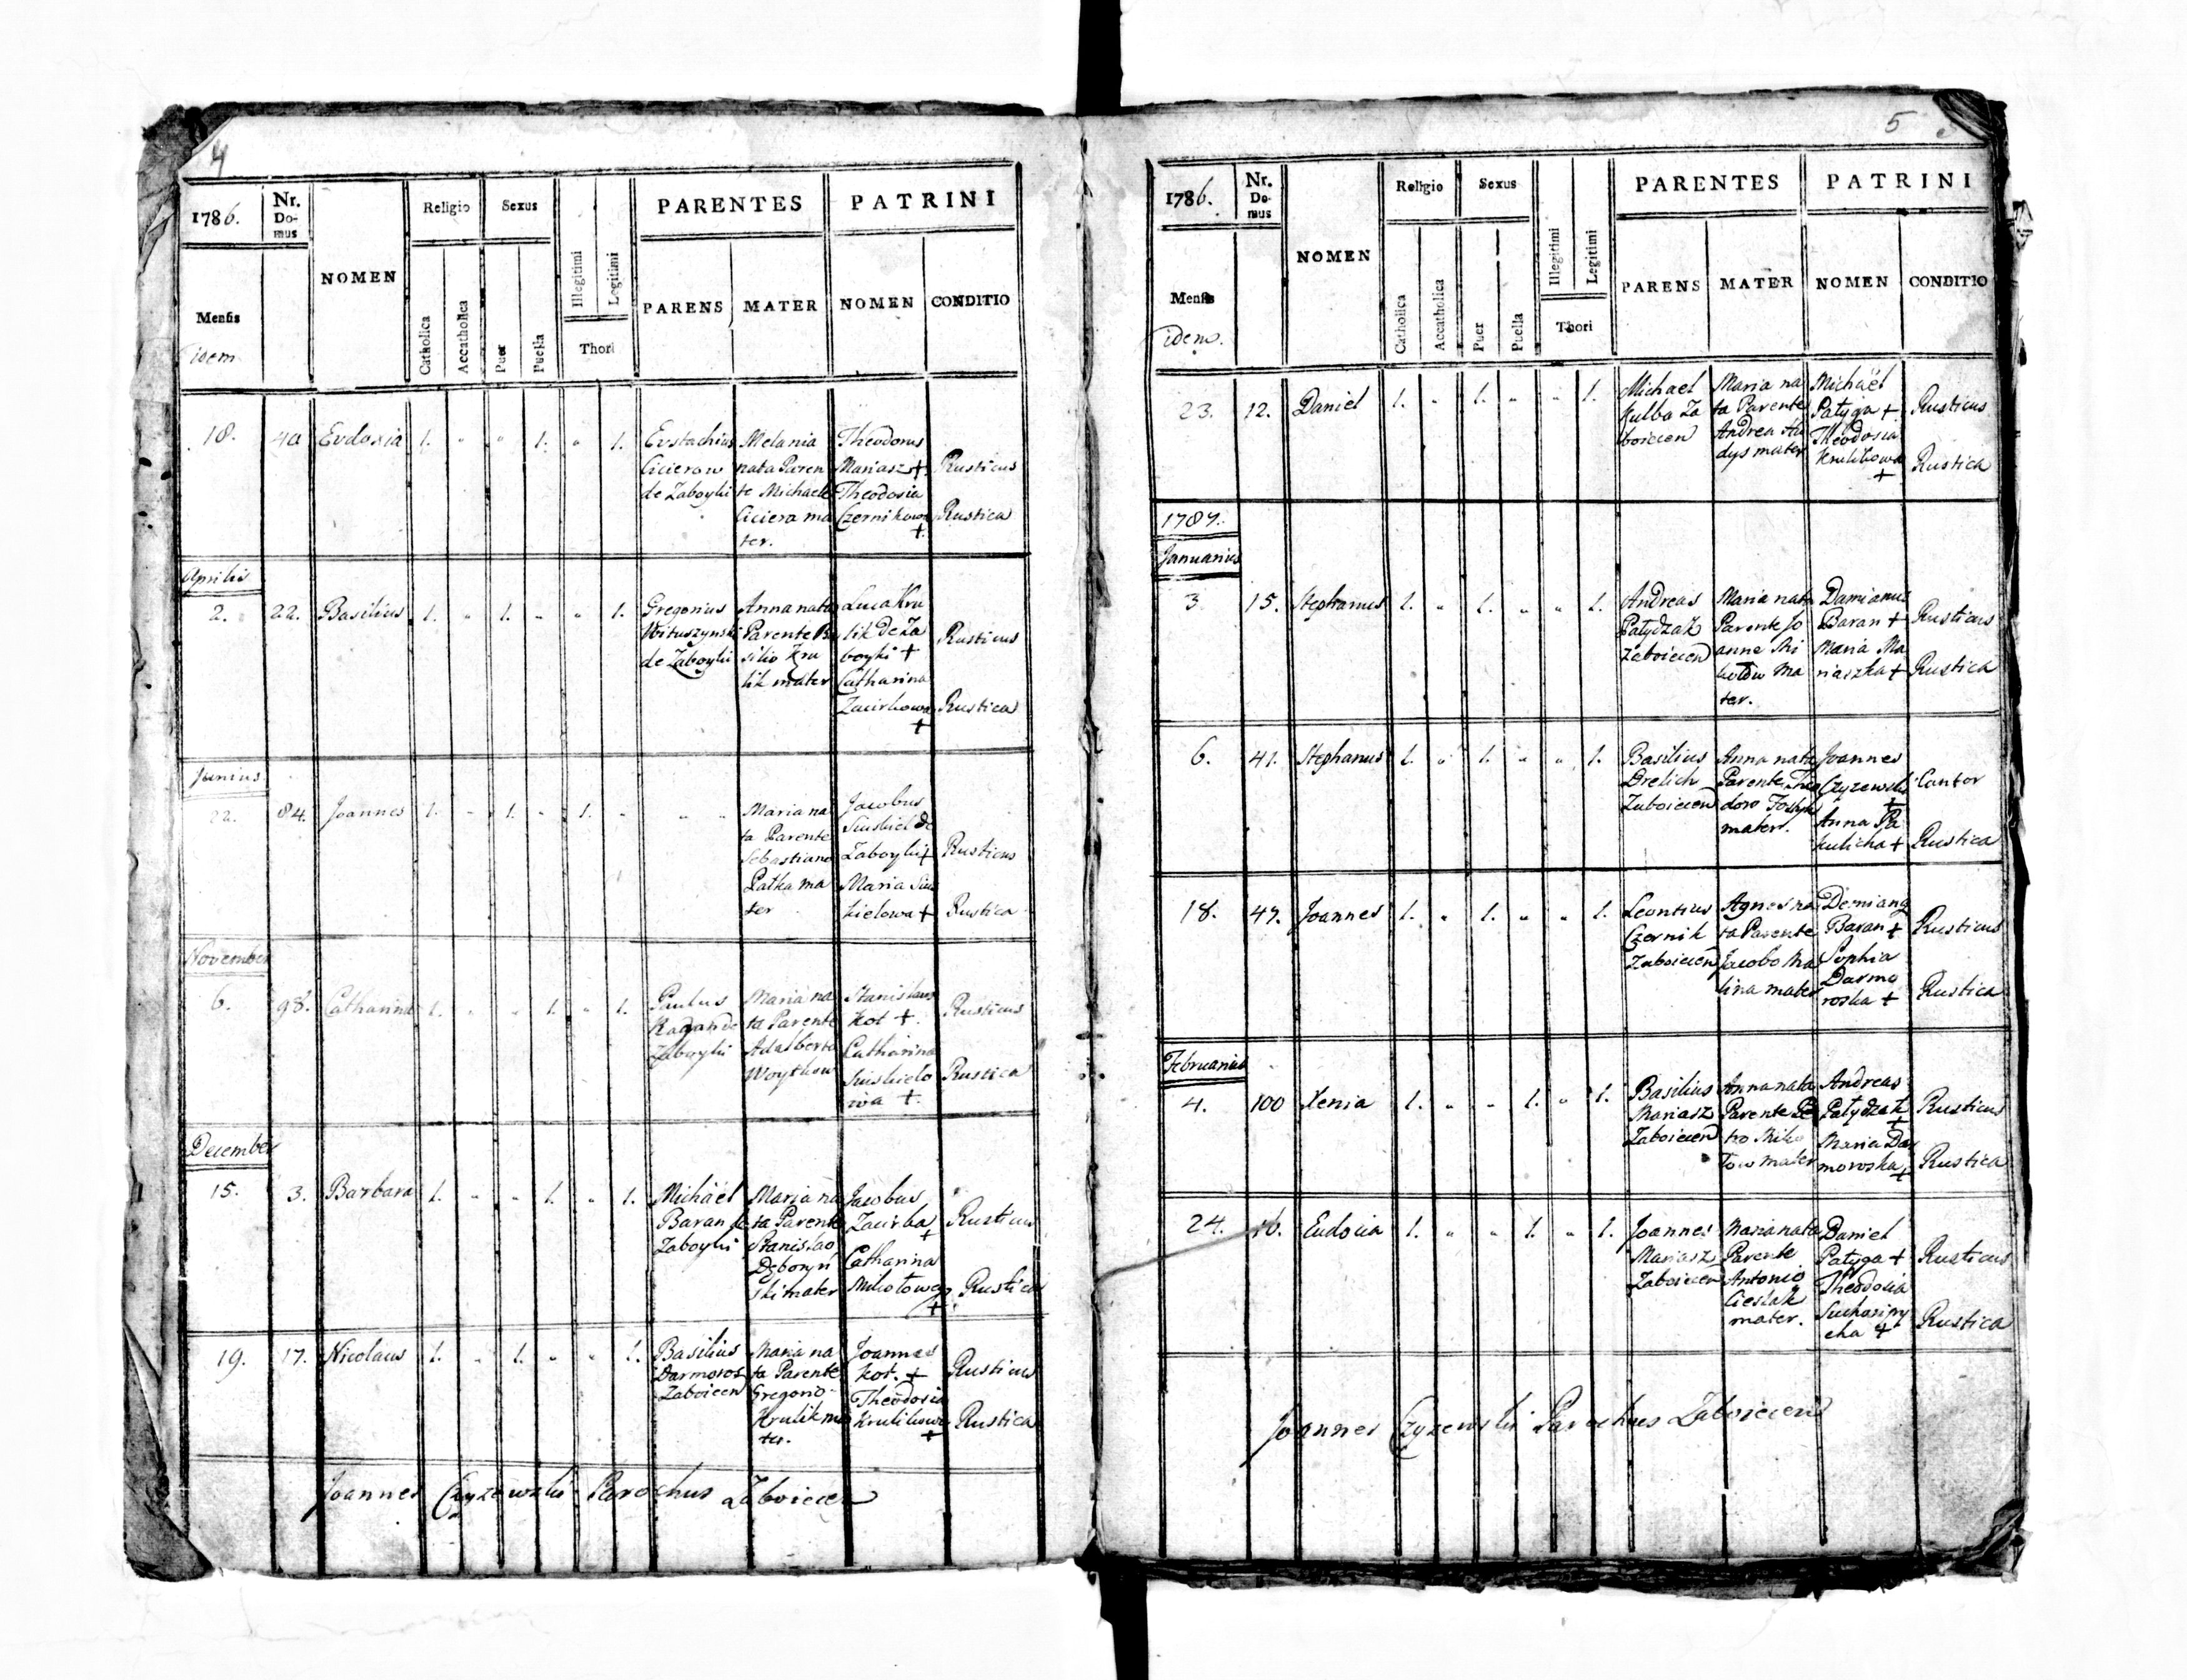 4
1786.
Nr. Do-
mus
NOMEN
Religio
Sexus
Illegitimi
Legitimi
PARENTES
PATRINI
Mensis
idem
Catholica
Accatholica
Puer
Puella
Thori
PARENS
MATER
NOMEN
CONDITIO
18. 40 Eudoxia 1. " " 1. " 1.
Eustachius
Cicierow
de Zaboyki
Melania
nata Paren
te Michaele
Ciciera ma
ter.
Theodorus
Mariasz +
Theodosia
Czernikowa
+
Rusticus
Rustica
Aprilis
2. 22. Basilius 1. " 1. " " 1.
Gregorius
Wituszynski
de Zaboyki
Anna nata
Parente Ba
silio Kru
lik mater
Luca Kru
lik de Za
boyki +
Catharina
Zacirkowa
+
Rusticus
Rustica
Junius
22. 84. Joannes 1. " 1. " 1. "
" "
Maria na
ta Parente
Sebastiano
Patka ma
ter
Jacobus
de
Zaboyki +
Maria
kielowa +
Rusticus
Rustica
November
6. 98. Catharina 1. " " 1. " 1.
Paulus
de
Zaboyki
Maria na
ta Parente
Adalberto
Woytkow
Stanislaus
Kot +.
Catharina
wa +.
Rusticus
Rustica
December
15. 3. Barbara 1. " " 1. " 1.
Michaël
Baran de
Zaboyki
Maria na
ta Parente
Stanislao
Dęboryń
ski mater
Jacobus
Zacirka
+
Catharina
Mikołowa
+
Rusticus
Rustica
19. 17. Nicolaus 1. " 1. " " 1.
Basilius
Darmoros
Zaboicen
Maria na
ta Parente
Gregorio
Krulik ma
ter.
Joannes
Kot. +
Theodosia
Krulikowa
+
Rusticus
Rustica
Joannes Czyzewski Parochus Zaboicen
5
1786.
Nr.
Do-
mus
NOMEN
Religio
Sexus
Illegitimi
Legitimi
PARENTES
PATRINI
Mensis
idem.
Catholica
Accatholica
Puer
Puella
Thori
PARENS
MATER
NOMEN
CONDITIO
23. 12. Daniel 1. " 1. " " 1.
Michael
Kulba Za
boicien
Maria na
ta Parente
Andrea Ha
dys mater
Michaël
Patyga +
Theodosia
Krulikowa
+
Rusticus
Rustica
1787.
Januarius
3. 15. Stephanus 1. " 1. " " 1.
Andreas
Patydzak
Zaboicien
Maria nata
Parente Jo
anne Mi
kołow Ma
ter.
Damianus
Baran +
Maria Ma
riaszka +
Rusticus
Rustica
6. 41. Stephanus 1. " 1. " " 1.
Basilius
Drelich
Zaboicien
Anna nata
Parente Theo
doro
mater.
Joannes
Czyzewski
+
Anna Pa
kulicha +
Cantor
Rustica
18. 47. Joannes 1. " 1. " " 1.
Leontius
Czernik
Zaboicien
Agnes na
ta Parente
Jacobo Ma
lina mater
Demiang
Baran +
Sophia
Darmo
roska +
Rusticus
Rustica
Februarius
4. 100 Xenia 1. " " 1. " 1.
Basilius
Mariasz
Zaboicien
Anna nata
Parente Pe
tro Miko
łow mater
Andreas
Patydzak
+
Maria Dar
moroska
+
Rusticus
Rustica
24. 16. Eudocia 1. " " 1. " 1.
Joannes
Mariasz
Zaboicien
Maria nata
Parente
Antonio
Cieslak
mater.
Daniel
Patyga +
Theodosia
Sucharipy
cha +
Rusticus
Rustica
Joannes Czyzewski Parochus Zaboiciens